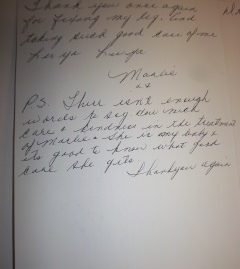 Thank you once again
for fixing my leg. And
taking such good care of me
Marlie
x x
P.S. There isn't enough
words to say how much
care & kindness in the treatment
of Marlie. She is my baby &
its good to know what good
care she gets.
Thankyou again